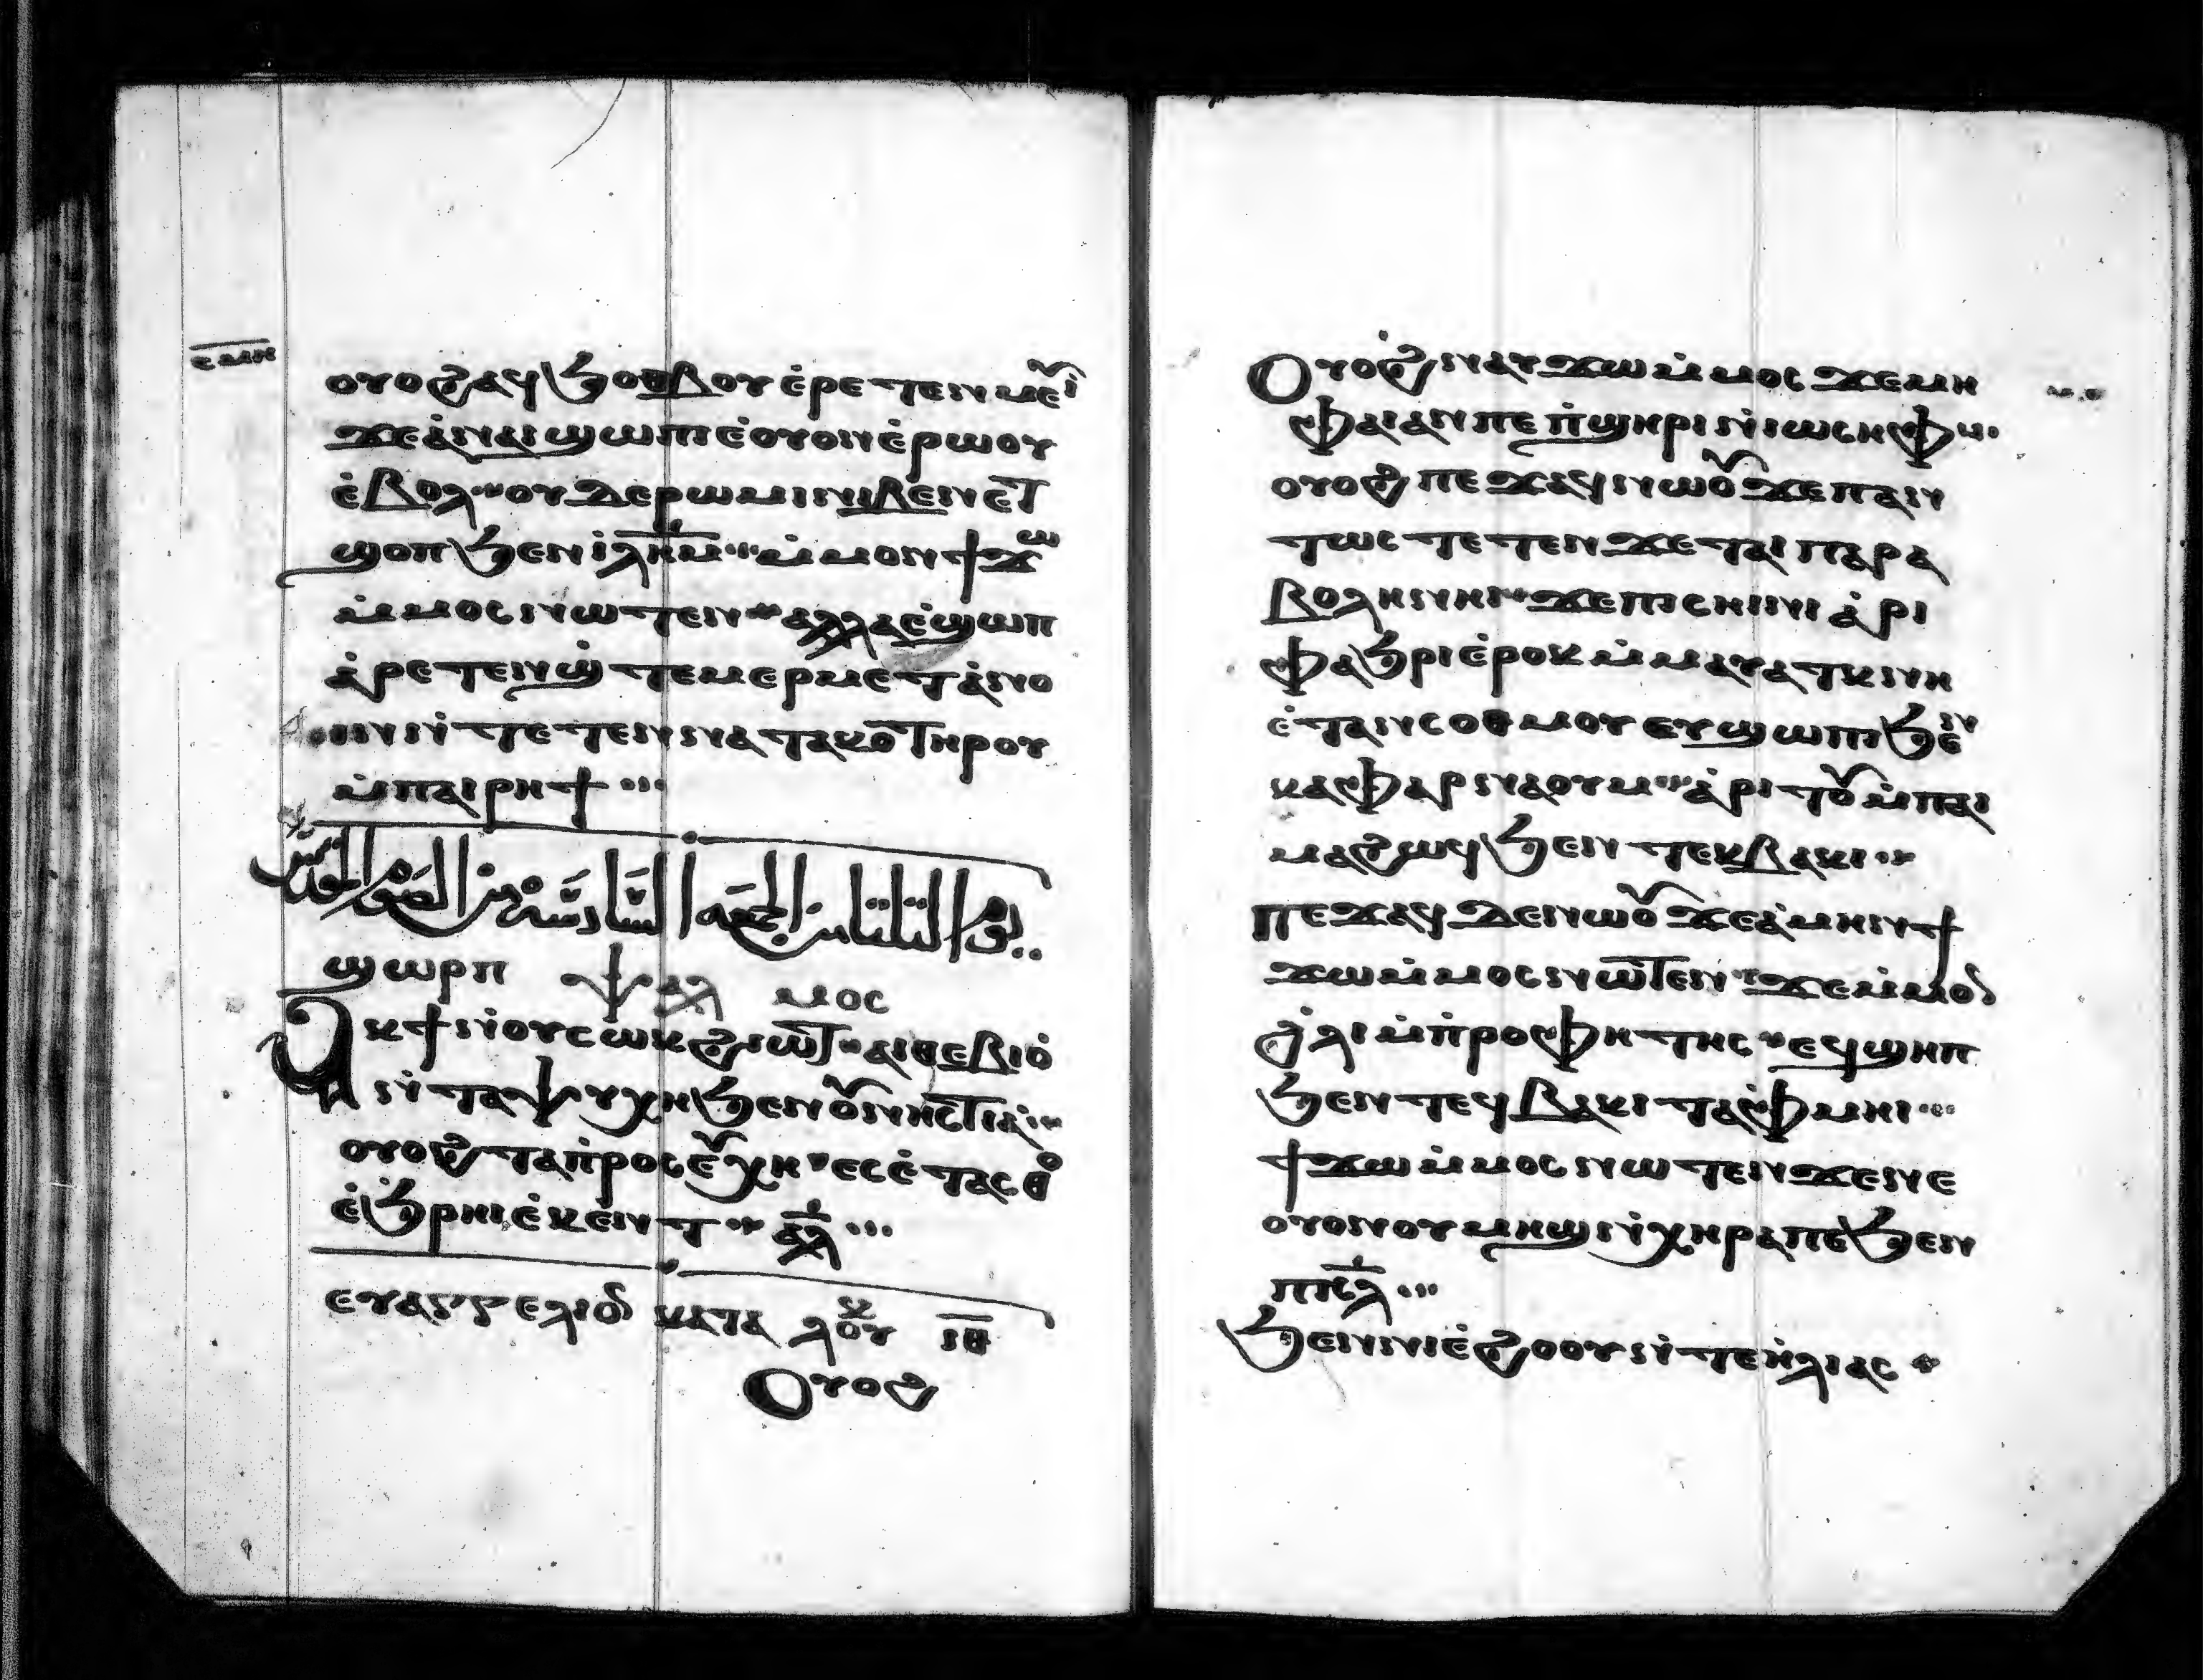 ⲥⲙⲏ
ⲟⲩⲟϩ ⲁϥϧⲟⲑⲃⲟⲩ ⲉ̀ⲣⲉⲧⲉⲛⲙⲉⲩⲓ̀
ϫⲉ ⲁ̀ ⲛⲁⲓ ϣⲱⲡⲓ ⲉ̀ⲟⲩⲟⲛ ⲉ̀ⲣⲱⲟⲩ
ⲉ̀ⲃⲟⲗ ⲟⲩⲇⲉ ⲣⲱⲙⲓ ⲛⲓⲃⲉⲛ ⲉⲧ
ϣⲟⲡ ϧⲉⲛ ⲓ̀ⲗ̅ⲏ̅ⲙ̅ ⲙ̀ⲙⲟⲛ ϯϫⲱ
ⲙ̀ⲙⲟⲥ ⲛⲱⲧⲉⲛ ⲁⲗⲗⲁ ⲉ̀ϣⲱⲡ
ⲁ̀ⲣⲉⲧⲉⲛϣ̀ⲧⲉⲙⲉⲣⲙⲉⲧⲁ̀ⲛⲟ
ⲓⲛ ⲛ̀ⲧⲉⲧⲉⲛⲛⲁⲧⲁⲕⲟ ⲧⲏⲣⲟⲩ
ⲙ̀ⲡⲁⲓⲣⲏϯ
يوم الثلثا من الجمعة السادسة من الصوم المقدس
ϣⲱⲣⲡ ⲯⲁⲗⲙⲟⲥ
Ⲁⲕϯ ⲛ̀ⲟⲩⲥⲱⲕ ϩⲓⲱⲧ ⲁⲓⲑⲉⲃⲓⲟ̀
ⲛ̀ⲧⲁⲯⲩⲭⲏ ϧⲉⲛ ⲟⲩⲛⲏⲥⲧⲓⲁ
ⲟⲩⲟϩ ⲧⲁⲡ̀ⲣⲟⲥⲉⲩⲭⲏ ⲉⲥⲉ̀ⲧⲁⲥⲑⲟ
ⲉ̀ϧ̀ⲣⲏⲓ ⲉ̀ⲕⲉⲛⲧ ⲁ̅ⲗ̅
ⲉⲩⲁⲅⲅⲉⲗⲓⲟⲛ ⲕⲁⲧⲁ ⲗⲟⲩⲕ ⲓ̅ⲑ̅
Ⲟⲩⲟϩ
Ⲟⲩⲟϩ ⲛⲁⲩϫⲱ ⲙ̀ⲙⲟⲥ ϫⲉ ⲙⲏ
ⲫⲁⲓ ⲁⲛ ⲡⲉ ⲡ̀ϣⲏⲣⲓ ⲛ̀ⲓⲱⲥⲏⲫ
ⲟⲩⲟϩ ⲡⲉϫⲁϥ ⲛⲱⲟⲩ ϫⲉ ⲡⲁⲛ
ⲧⲱⲥ ⲧⲉⲧⲉⲛϫⲉ ⲧⲁⲓⲡⲁⲣⲁ
ⲃⲟⲗⲏ ⲛⲏⲓ ϫⲉ ⲡⲓⲥⲏⲓⲛⲓ ⲁ̀ⲣⲓ
ⲫⲁϧⲣⲓ ⲉ̀ⲣⲟⲕ ⲙ̀ⲙⲁⲩⲁⲧⲕ ⲛⲏ
ⲉ̀ⲧⲁⲛⲥⲟⲑⲙⲟⲩ ⲉⲩϣⲱⲡⲓ ϧⲉⲛ
ⲕⲁⲫⲁⲣⲛⲁⲟⲩⲙ ⲁ̀ⲣⲓⲧⲟⲩ ⲙ̀ⲡⲁⲓ
ⲙⲁ ϩⲱϥ ϧⲉⲛ ⲧⲉⲕⲃⲁⲕⲓ
ⲡⲉϫⲁϥ ⲇⲉ ⲛⲱⲟⲩ ϫⲉ ⲁ̀ⲙⲏⲛ ϯ
ϫⲱ ⲙ̀ⲙⲟⲥ ⲛⲱⲧⲉⲛ ϫⲉ ⲙ̀ⲙⲟⲛ
ϩ̀ⲗⲓ ⲙ̀ⲡ̀ⲣⲟⲫⲏⲧⲏⲥ ⲉϥϣⲏⲡ
ϧⲉⲛ ⲧⲉϥⲃⲁⲕⲓ ⲧⲁⲫⲙⲏⲓ
ϯϫⲱ ⲙ̀ⲙⲟⲥ ⲛⲱⲧⲉⲛ ϫⲉ ⲛⲉ
ⲟⲩⲟⲛ ⲟⲩⲙⲏϣ ⲛ̀ⲭⲏⲣⲁ ⲡⲉ ϧⲉⲛ
ⲡⲓⲥ̅ⲗ̅
ϧⲉⲛ ⲛⲓⲉ̀ϩⲟⲟⲩ ⲛ̀ⲧⲉ ⲏ̀ⲗⲓⲁⲥ